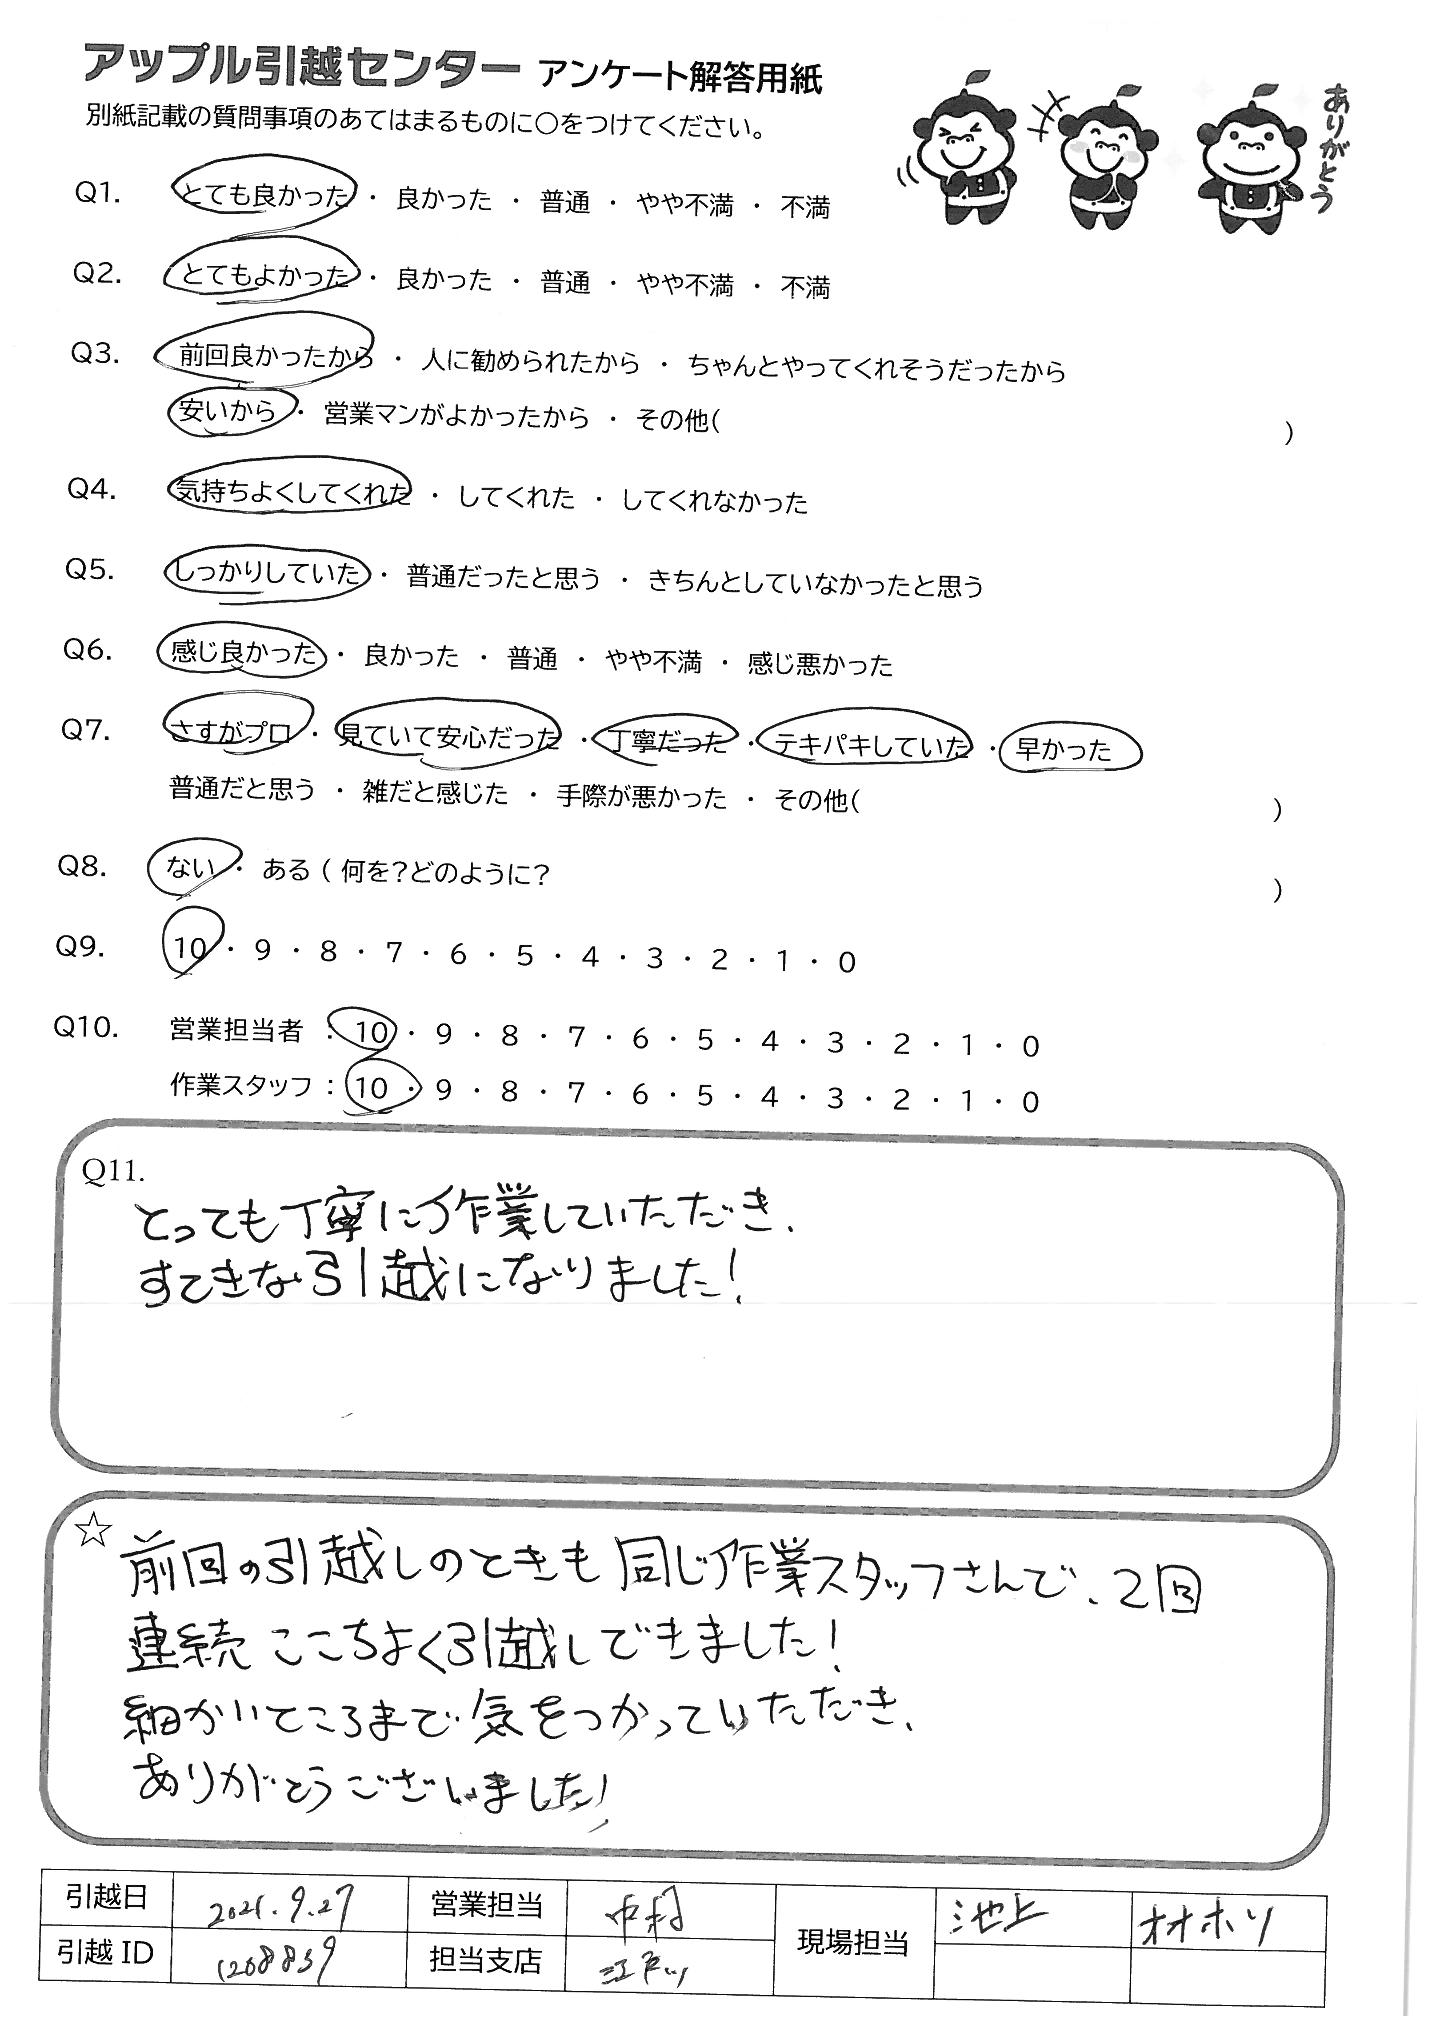 アップル引越センター アンケート解答用紙
別紙記載の質問事項のあてはまるものに〇をつけてください。
ありがとう
Q1. とても良かった ・ 良かった ・ 普通 ・ やや不満 ・ 不満
Q2. とてもよかった ・ 良かった ・ 普通 ・ やや不満 ・ 不満
Q3. 前回良かったから ・ 人に勧められたから ・ ちゃんとやってくれそうだったから
安いから ・ 営業マンがよかったから ・ その他( )
Q4. 気持ちよくしてくれた ・ してくれた ・ してくれなかった
Q5. しっかりしていた ・ 普通だったと思う ・ きちんとしていなかったと思う
Q6. 感じ良かった ・ 良かった ・ 普通 ・ やや不満 ・ 感じ悪かった
Q7. さすがプロ ・ 見ていて安心だった ・ 丁寧だった ・ テキパキしていた ・ 早かった
普通だと思う ・ 雑だと感じた ・ 手際が悪かった ・ その他( )
Q8. ない ・ ある ( 何を?どのように? )
Q9. 10 ・ 9 ・ 8 ・ 7 ・ 6 ・ 5 ・ 4 ・ 3 ・ 2 ・ 1 ・ 0
Q10. 営業担当者 : 10 ・ 9 ・ 8 ・ 7 ・ 6 ・ 5 ・ 4 ・ 3 ・ 2 ・ 1 ・ 0
作業スタッフ : 10 ・ 9 ・ 8 ・ 7 ・ 6 ・ 5 ・ 4 ・ 3 ・ 2 ・ 1 ・ 0
Q11.
とっても丁寧に作業していただき、
すてきな引越になりました!
☆
前回の引越しのときも同じ作業スタッフさんで、2回
連続ここちよく引越しできました!
細かいところまで気をつかっていただき、
ありがとうございました!
引越日 2021.9.27 営業担当 中村 現場担当 池上 オオホリ
引越 ID 1208839 担当支店 江戸川